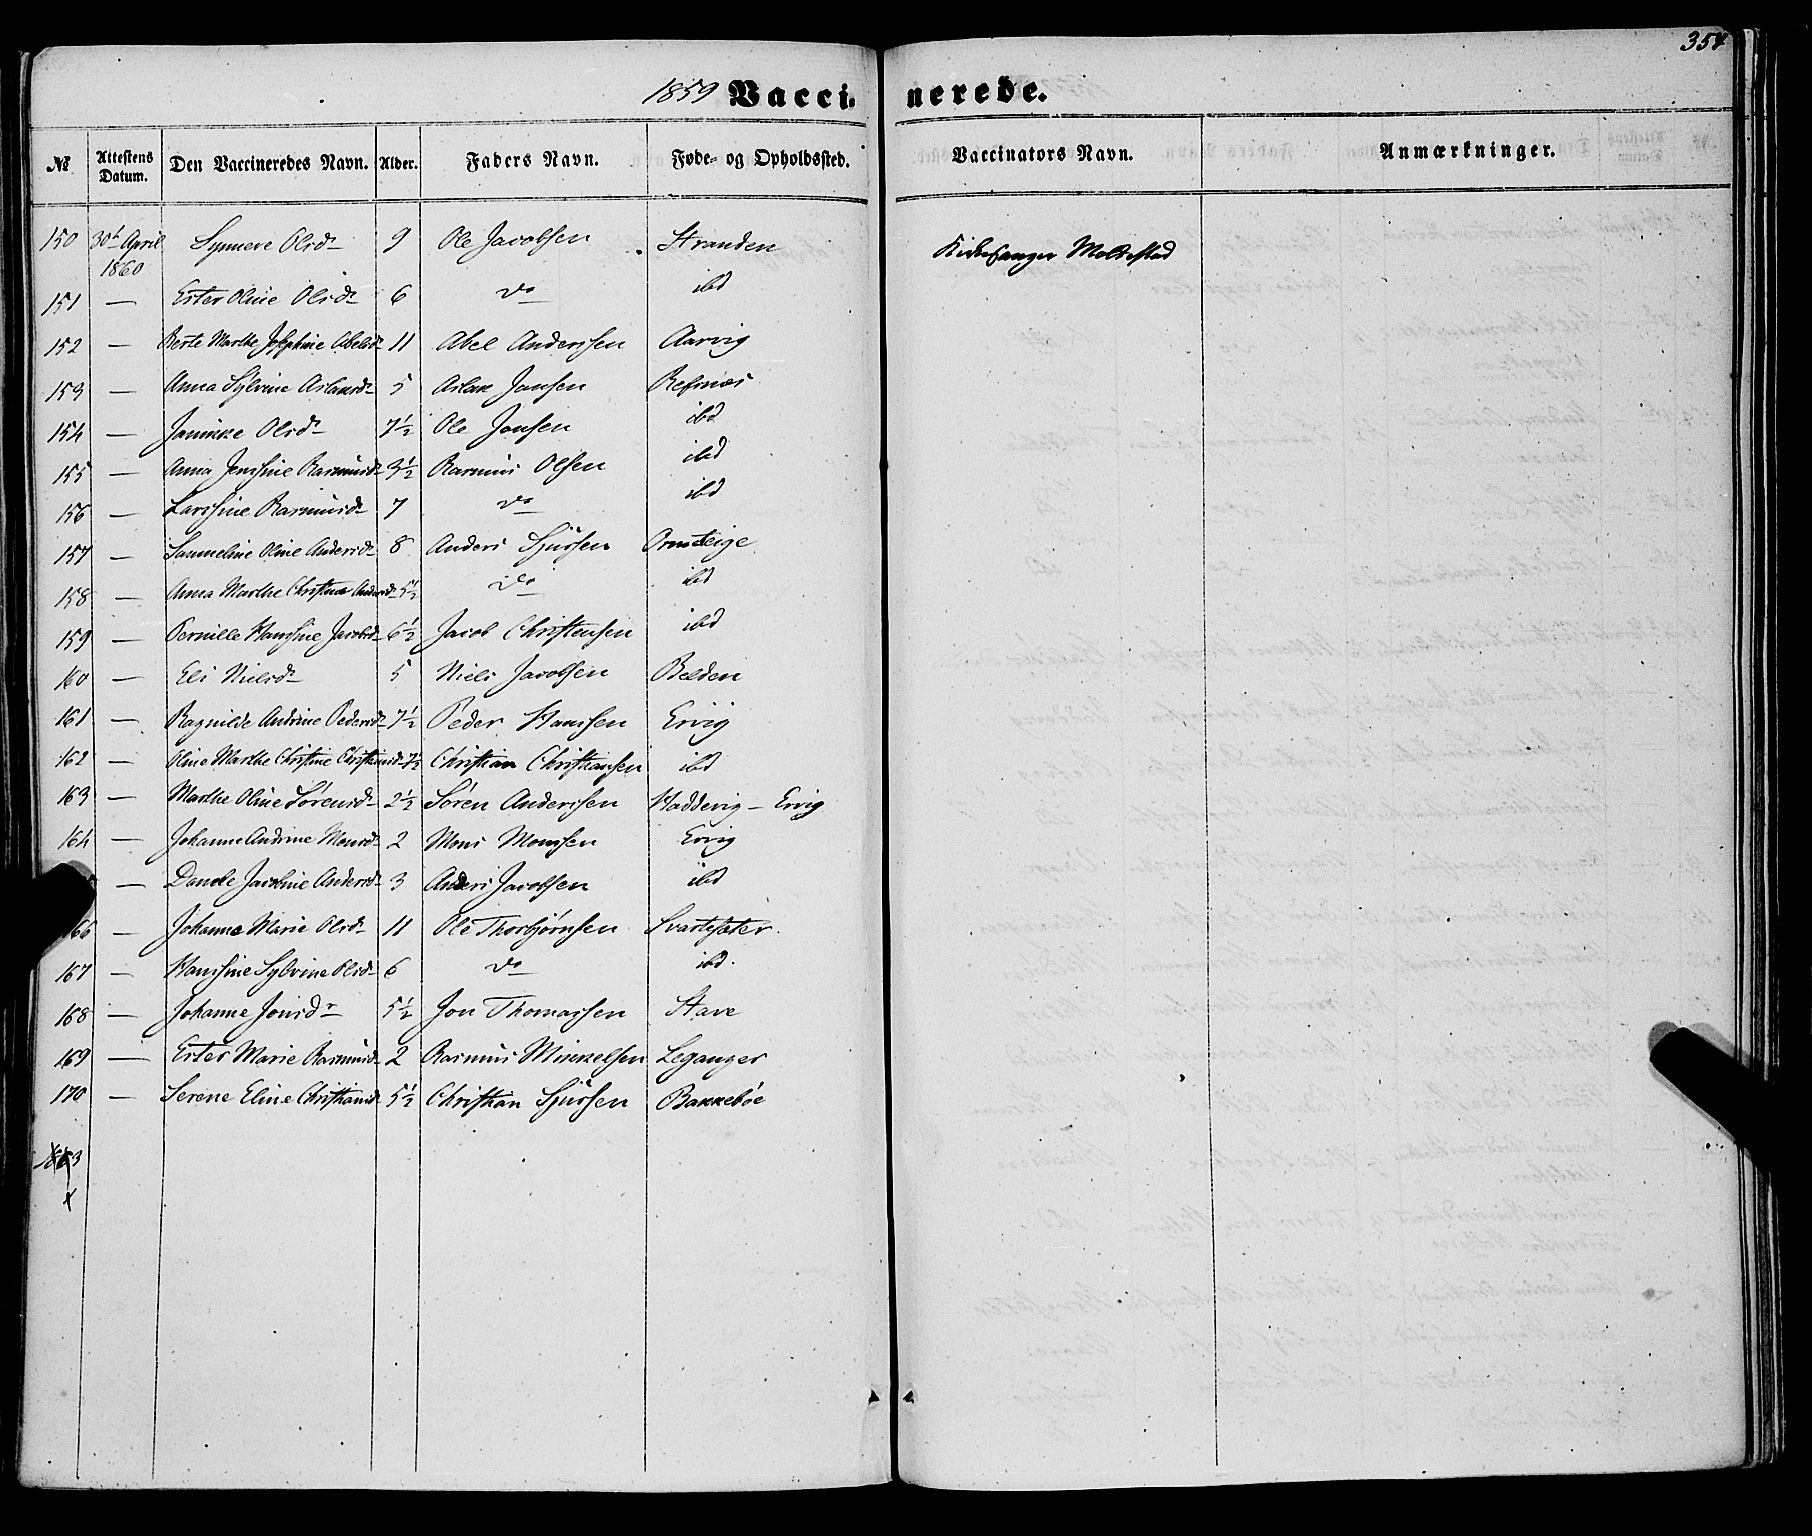 354
1859 Vaccinerede.
№ Attestens Datum. Den Vaccineredes Navn. Alder. Faders Navn. Føde- og Opholdssted. Vaccinators Navn. Anmærkninger.
150 30t April 1860 Synneve Olsdr 9 Ole Jacobsen Stranden Kirkesanger Moldestad
151 — Ester Oline Olsdr 6 do ibd
152 — Berte Marthe Josephine Abelsdr 11 Abel Anderssen Aarvig
153 — Anna Sylvine Aslaksdr 5 Aslak Jonsen Refsnæs
154 — Jannikke Olsdr 7½ Ole Jonsen ibd
155 — Anna Jenssine Rasmusdr 3½ Rasmus Olsen ibd
156 — Larssine Rasmusdr 7 do ibd
157 — Samueline Oline Andersdr 8 Anders Sjursen Ormteige
158 — Anna Marthe Christine Andersdr 5½ do ibd
159 — Pernille Hanssine Jacobsdr 6½ Jacob Christensen ibd
160 — Eli Nielsdr 5 Niels Jacobsen Belden
161 — Ragnilde Andrine Pedersdr 7½ Peder Hanssen Ervig
162 — Oline Marthe Christine Christiansdr 7½ Christian Christiansen ibd
163 — Marthe Oline Sørensdr 2½ Søren Anderssen Haddevig – Ervig
164 — Johanne Andrine Monsdr 2 Mons Monssen Ervig
— Danole Jacobine Andersdr 3 Anders Jacobsen ibd
166 — Johanne Marie Olsdr 11 Ole Thorbjørnsen Svartesæter.
167 — Hanssine Sylvine Olsdr 6 do ibd.
168 — Johanne Jonsdr 5½ Jon Thomassen Stave
169 — Ester Marie Rasmusdr 2 Rasmus Mikkelsen Leganger
170 — Serene Eline Christiansdr 5½ Christian Sjursen Bakkebøe